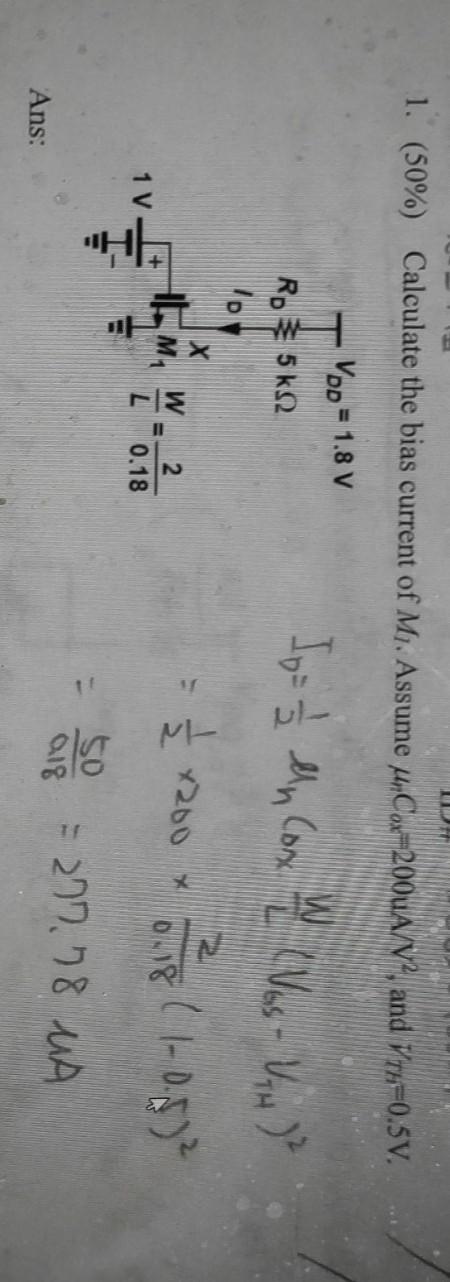 1. (50%) Calculate the bias current of M₁. Assume μₙCₒₓ=200uA/V², and V_TH=0.5V.
V_DD = 1.8 V
R_D 5 kΩ
I_D
X
M₁ W/L = 2/0.18
1 V
+
−
Ans:
I_D = 1/2 μₙ Cox W/L (V_GS - V_TH)²
= 1/2 × 200 × 2/0.18 (1-0.5)²
= 50/0.18 = 277.78 uA